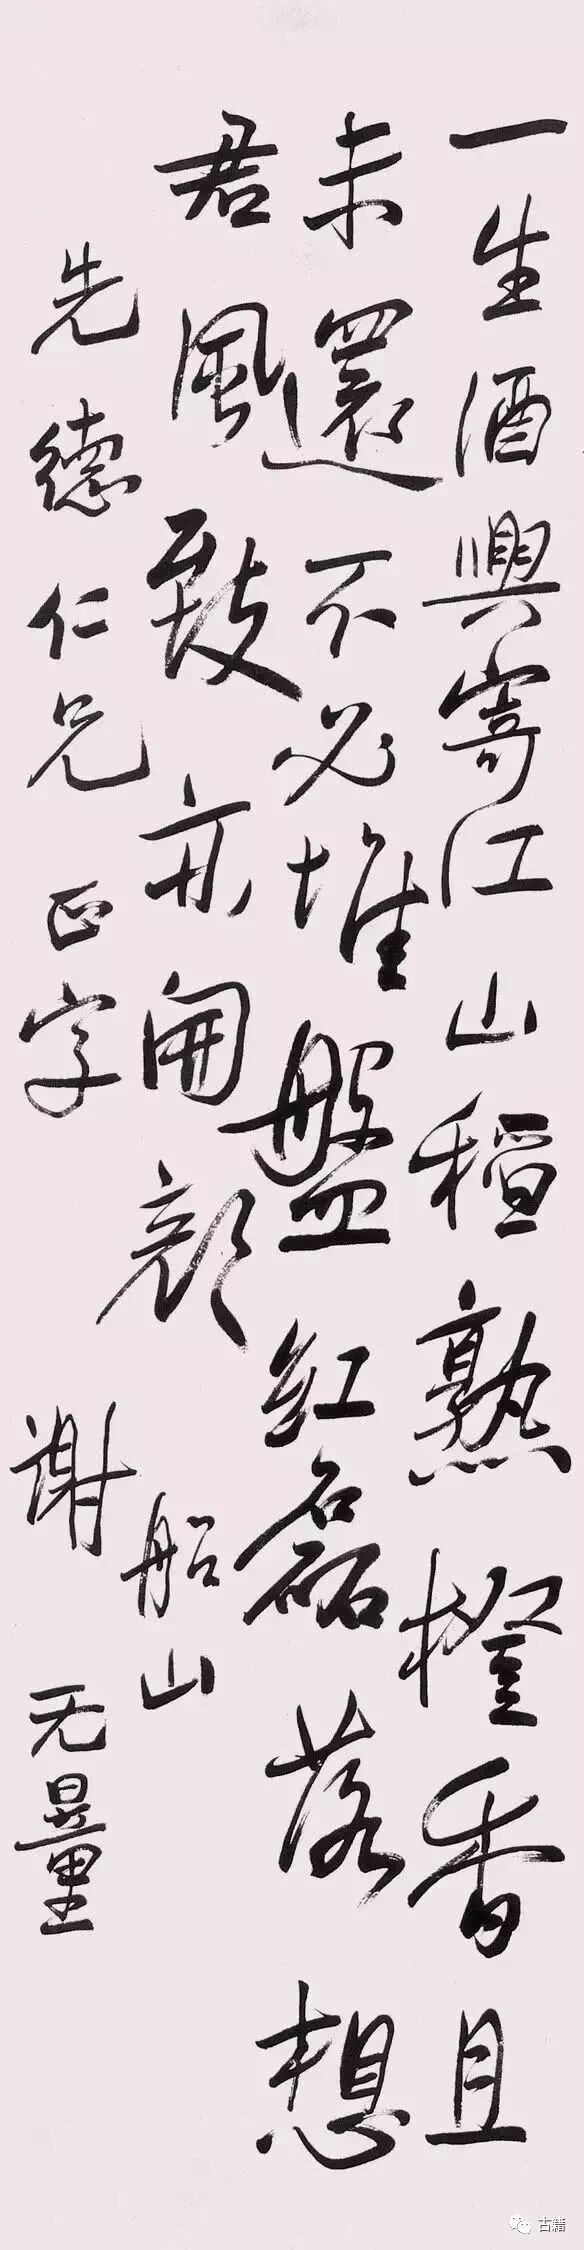 一生酒興寄江山稻熟橙香且
未還不必堆盤紅磊落想
君風致亦開顏
船山
先德仁兄正字
謝无量
古籍